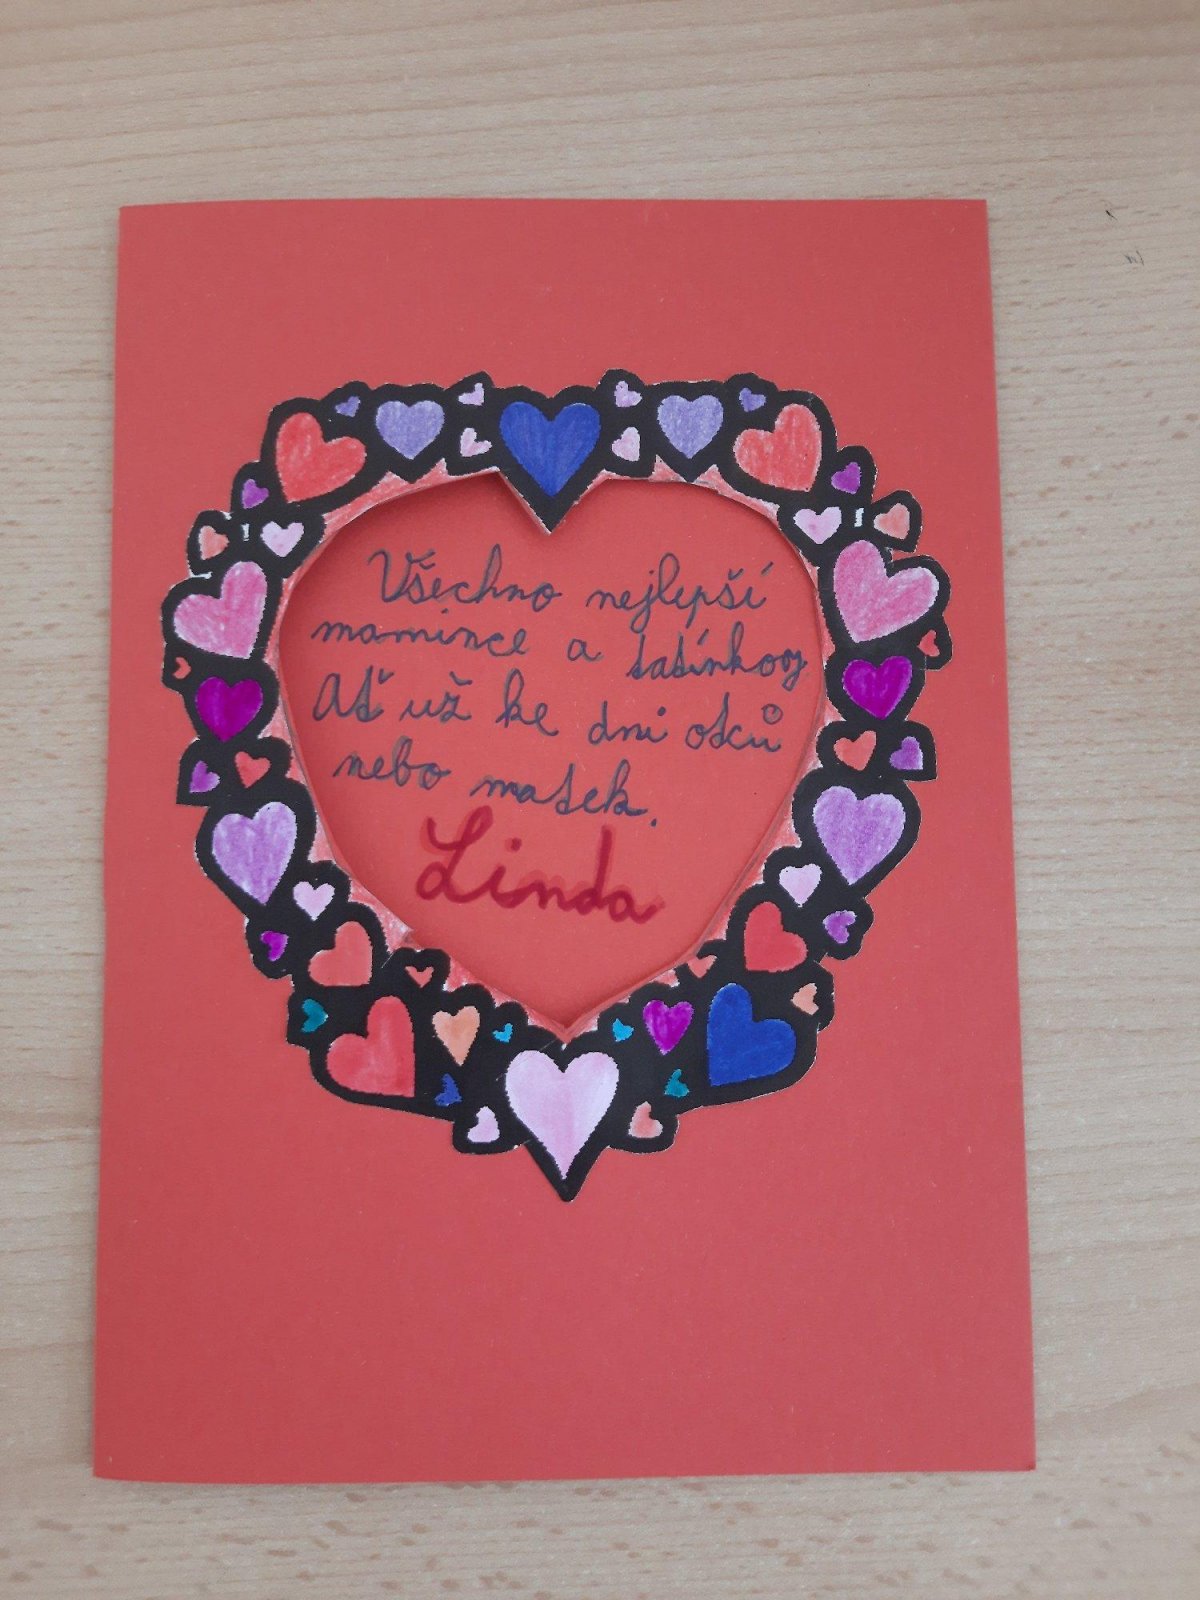 Všechno nejlepší
mamince a tatínkovy
Ať už ke dni otců
nebo matek.
Linda